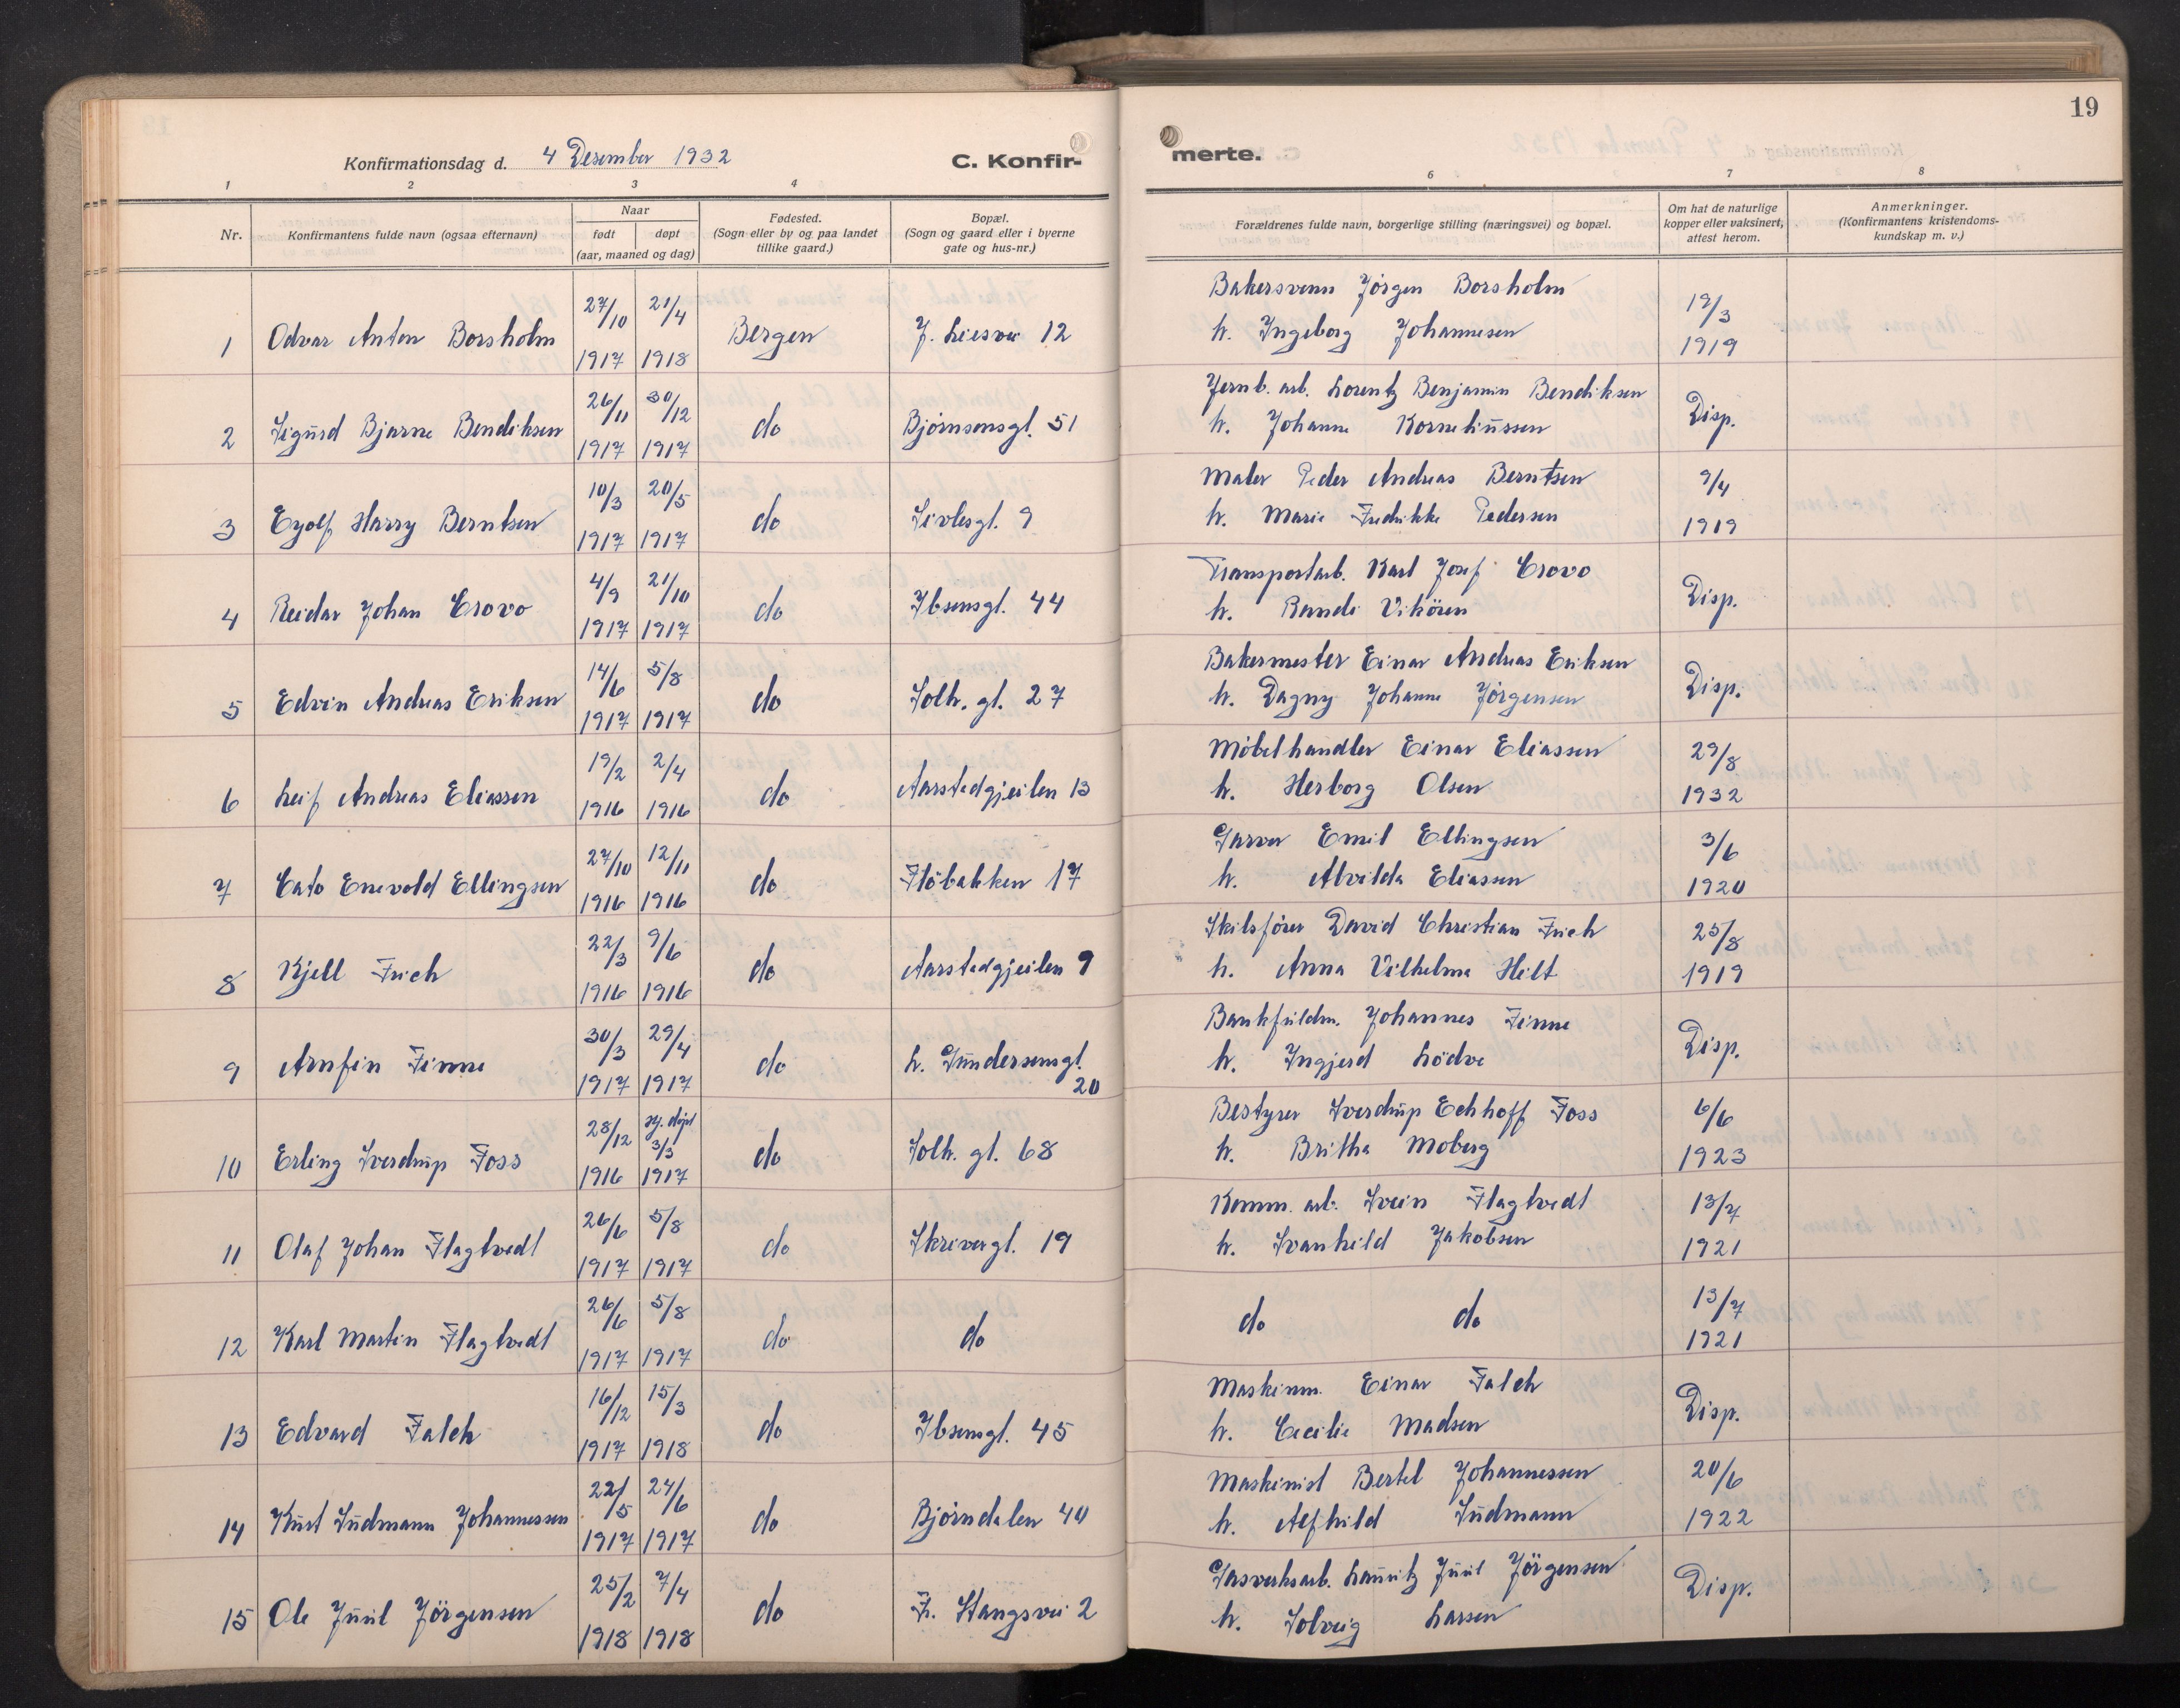 19
Konfirmationsdag d. 4 Desember 1932
C. Konfir-
merte.
1 2 3 4 5 6 7 8
Nr.
Konfirmantens fulde navn (ogsaa efternavn)
Naar
født døpt
(aar, maaned og dag)
Fødested.
(Sogn eller by og paa landet
tillike gaard.)
Bopæl.
(Sogn og gaard eller i byerne
gate og hus-nr.)
Forældrenes fulde navn, borgerlige stilling (næringsvei) og bopæl.
Om hat de naturlige
kopper eller vaksinert,
attest herom.
Anmerkninger.
(Konfirmantens kristendoms-
kundskap m. v.)
27/10 21/4 Bakersvenn Jørgen Borsholm 19/3
1 Odvar Anton Borsholm Bergen J. Liesvei 12 h. Ingeborg Johannesen
1917 1918 1919
26/11 30/12 Jernb. arb. Lorentz Benjamin Bendiksen
2 Sigurd Bjarne Bendiksen do Bjørnsonsgt. 51 h. Johanne Korneliussen Disp.
1917 1917
10/3 20/5 Maler Peder Andreas Berntsen 9/4
3 Eyolf Harry Berntsen do Sivlesgt. 9 h. Marie Fredrikke Pedersen
1917 1917 1919
4/9 21/10 Transportarb. Karl Josef Crovo
4 Reidar Johan Crovo do Ibsensgt. 44 h. Randi Vikören Disp.
1917 1917
14/6 5/8 Bakermester Einar Andreas Eriksen
5 Edvin Andreas Eriksen do Solh. gt. 27 h. Dagny Johanne Jörgensen Disp.
1917 1917
19/2 2/4 Möbelhandler Einar Eliassen 29/8
6 Leif Andreas Eliassen do Aarstadgjeilen 13 h. Herborg Olsen
1916 1916 1932
27/10 12/11 Garver Emil Ellingsen 3/6
7 Cato Enevold Ellingsen do Flöbakken 17 h. Alvilda Eliassen
1916 1916 1920
22/3 9/6 Skibsförer David Christian Frich 25/8
8 Kjell Frich do Aarstadgjeilen 9 h. Anna Vilhelma Hilt
1916 1916 1919
30/3 29/4 Bankfuldm. Johannes Finne
9 Arnfin Finne do L. Gundersensgt. 20 h. Ingjerd Lödve Disp.
1917 1917
28/12 hj. døpt 3/3 Bestyrer Sverdrup Echhoff Foss 6/6
10 Erling Sverdrup Foss do Solh. gt. 68 h. Britha Moberg
1916 1917 1923
26/6 5/8 Komm. arb. Svein Flagtvedt 13/7
11 Olaf Johan Flagtvedt do Skrivergt. 19 h. Svanhild Jakobsen
1917 1917 1921
26/6 5/8 13/7
12 Karl Martin Flagtvedt do do do do
1917 1917 1921
16/12 15/3 Maskinm. Einar Falch
13 Edvard Falch do Ibsensgt. 45 h. Cecilie Madsen Disp.
1917 1918
22/5 24/6 Maskinist Bertel Johannessen 20/6
14 Kurt Sudmann Johannessen do Bjørndalen 40 h. Alfhild Sudmann
1917 1917 1922
25/2 7/4 Gasverksarb. Lauritz Juul Jörgensen
15 Ole Juul Jörgensen do F. Stangsvei 2 h. Solveig Larsen Disp.
1918 1918